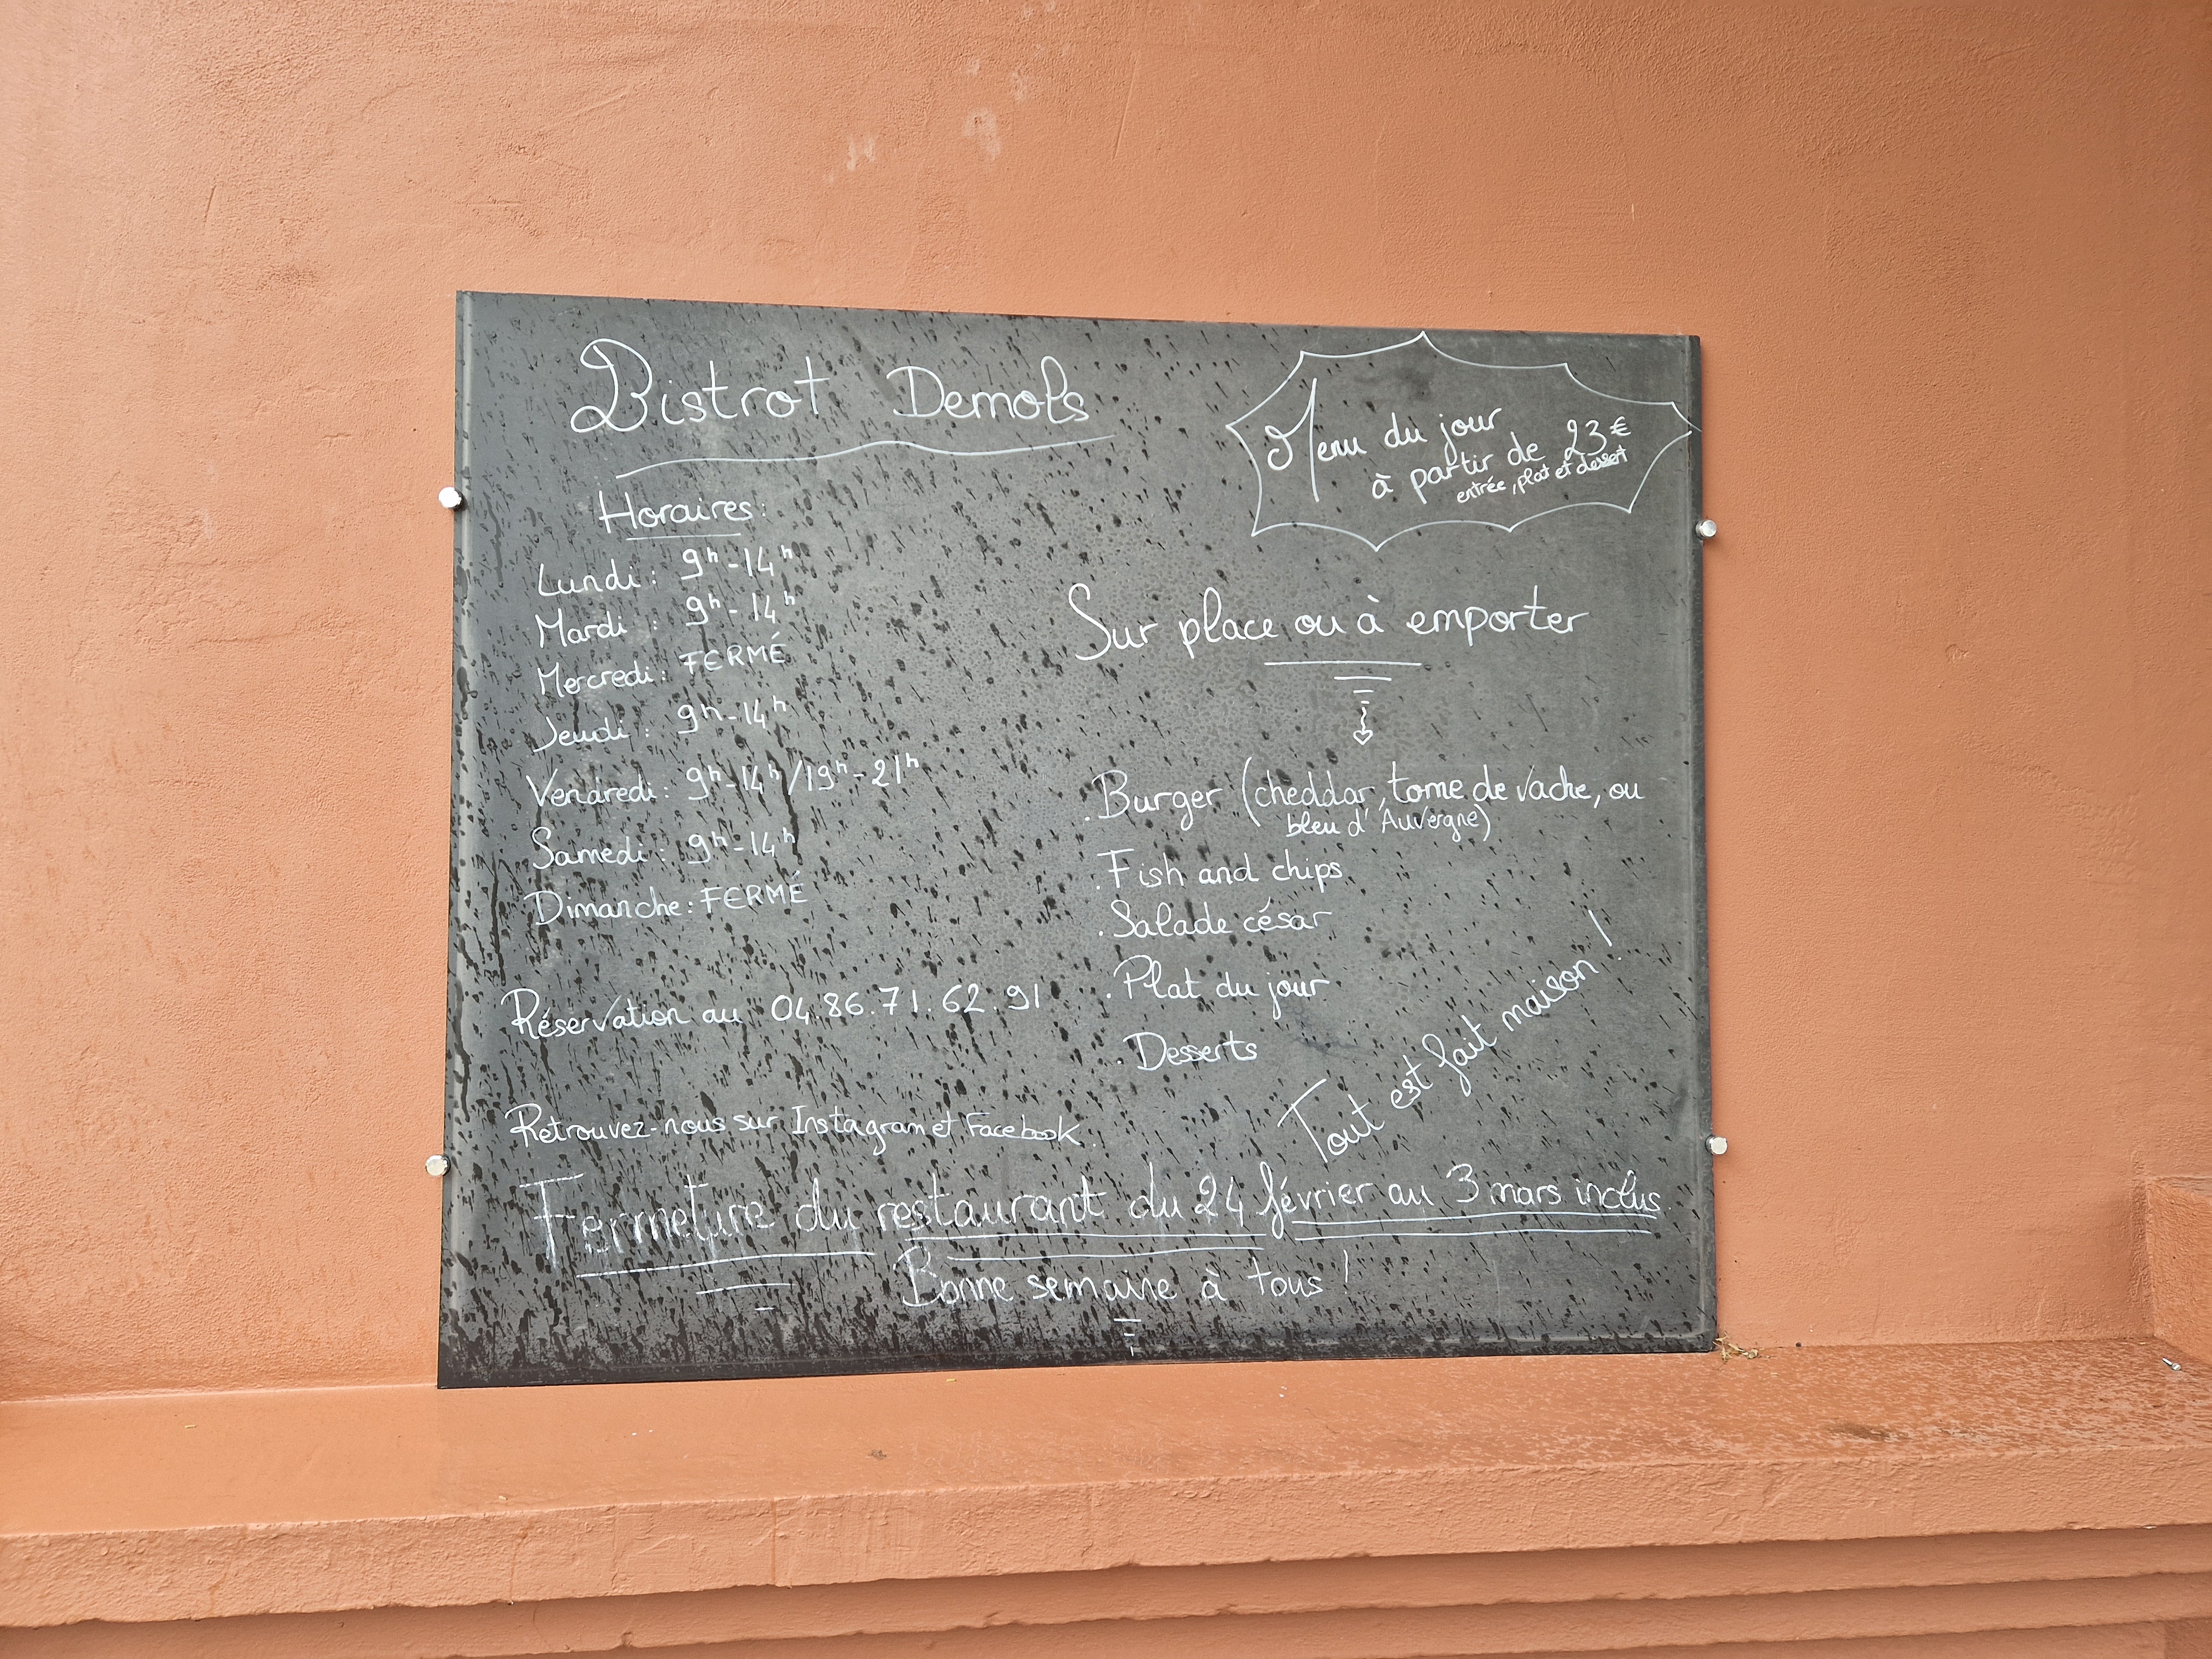 Bistrot Demols
Menu du jour
à partir de 23€
entrée, plat et dessert
Horaires:
Lundi: 9h-14h
Mardi: 9h-14h
Mercredi: FERMÉ
Jeudi: 9h-14h
Vendredi: 9h-14h/19h-21h
Samedi: 9h-14h
Dimanche: FERMÉ
Réservation au 04.86.71.62.91
Retrouvez-nous sur Instagram et Facebook.
Sur place ou à emporter
. Burger (cheddar, tome de vache, ou
bleu d'Auvergne)
. Fish and chips
. Salade césar
. Plat du jour
. Desserts
Tout est fait maison !
Fermeture du restaurant du 24 février au 3 mars inclus.
Bonne semaine à tous !